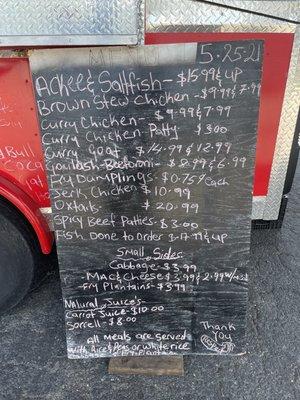 5-25-21
Ackee & Saltfish - $15.99 & up
Brown Stew Chicken - $9.99 & 7.99
Curry Chicken - $9.99 & 7.99
Curry Chicken - Patty $3.00
Curry Goat - $14.99 & 12.99
Goulash-Beefaroni - $8.99 & 6.99
Fry Dumplings - $0.75¢ each
Jerk Chicken $10.99
Oxtails - $20.99
Spicy Beef Patties - $3.00
Fish Done to Order 3-17.99 & up
Small Sides:
Cabbage - $3.99
Mac & Cheese $3.99 & 2.99
Fry Plantains - $3.99
Natural Juice's -
Carrot Juice - $10.00
Sorrell - $8.00
All meals are served
with Rice & Peas or White rice
& Fry Plantain
Thank
you